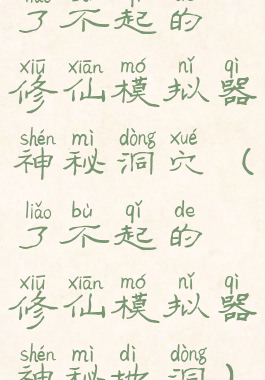 liǎo bù qǐ de
了不起的
xiū xiān mó nǐ qì
修仙模拟器
shén mì dòng xué
神秘洞穴（
liǎo bù qǐ de
了不起的
xiū xiān mó nǐ qì
修仙模拟器
shén mì dì dòng
神秘地洞）